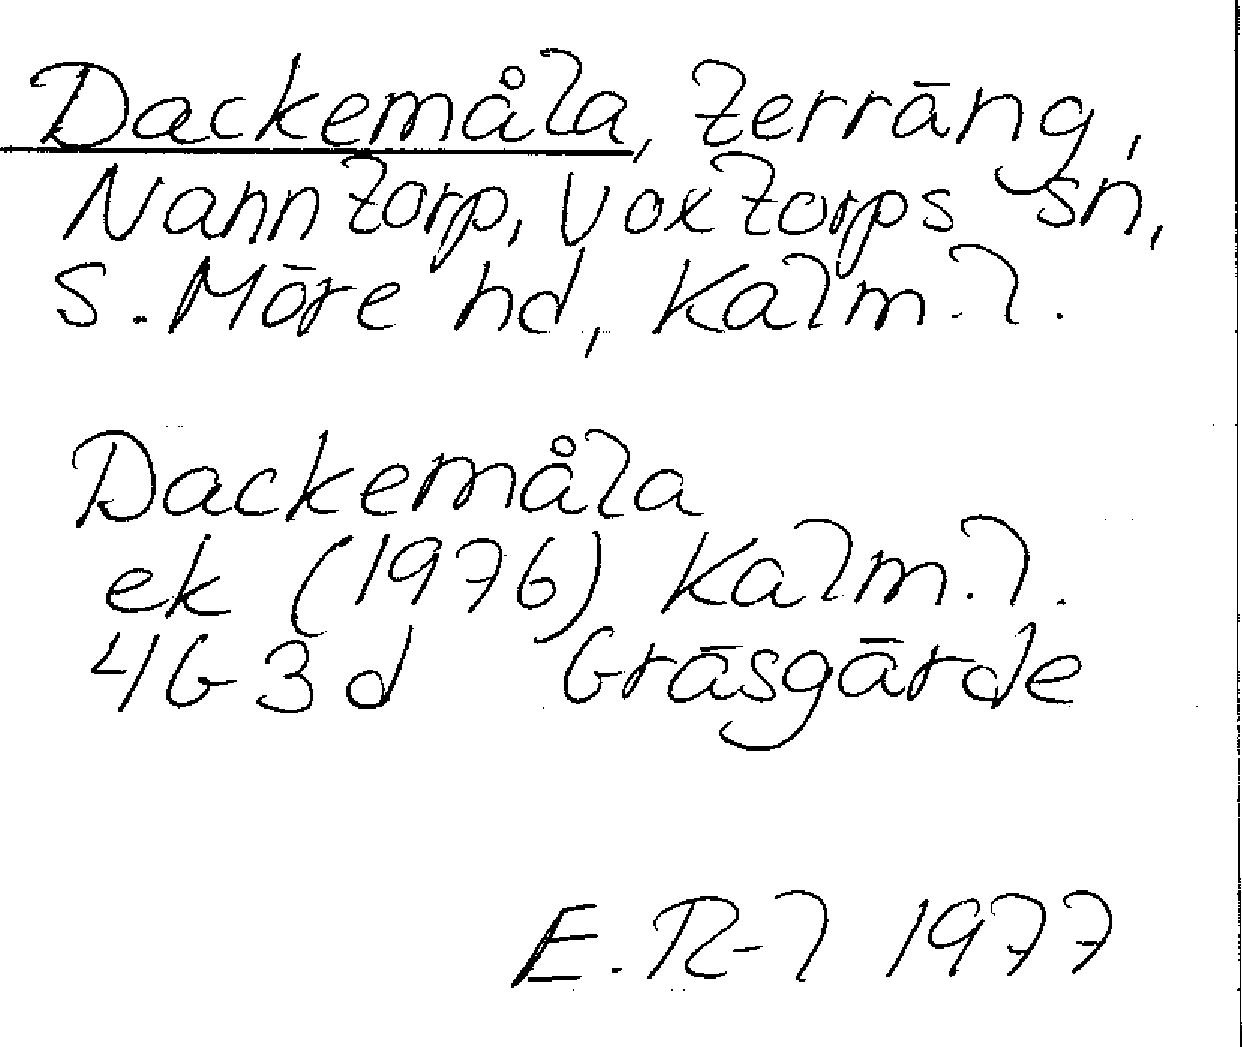 Dackemåla, terräng,
Nanntorp, Voxtorps sn,
S. Möre hd, Kalm. l.
Dackemåla
ek (1976) Kalm. l.
4G 3d Gräsgärde
E. R-l 1977